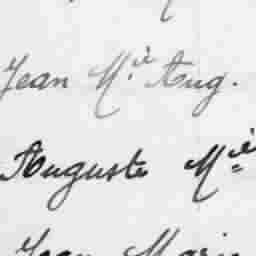 Jean M.ie Aug.
Auguste M.ie
Jean Marie